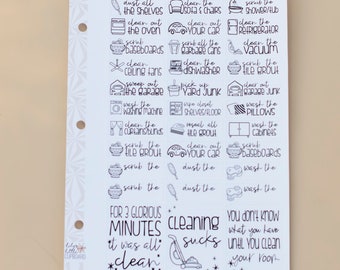 dust all the shelves
clean the sofa & chairs
scrub the shower/tub
clean out the oven
clean out your car
clean the refrigerator
scrub baseboards
scrub all the garbage cans
clean the vacuum
clean ceiling fans
clean the dishwasher
scrub the tile grout
sweep out the garage
pick up yard junk
clean out the garage
wash the washing machine
wipe closet shelves/floor
wash the pillows
clean the curtains/blinds
reseal all tile grout
wash the cabinets
scrub the tile grout
clean out your car
scrub the baseboards
scrub the
dust the
wash the
scrub the
dust the
wash the
FOR 3 GLORIOUS MINUTES it was all clean
CLEANING sucks
YOU DON'T KNOW what you have UNTIL YOU CLEAN your room